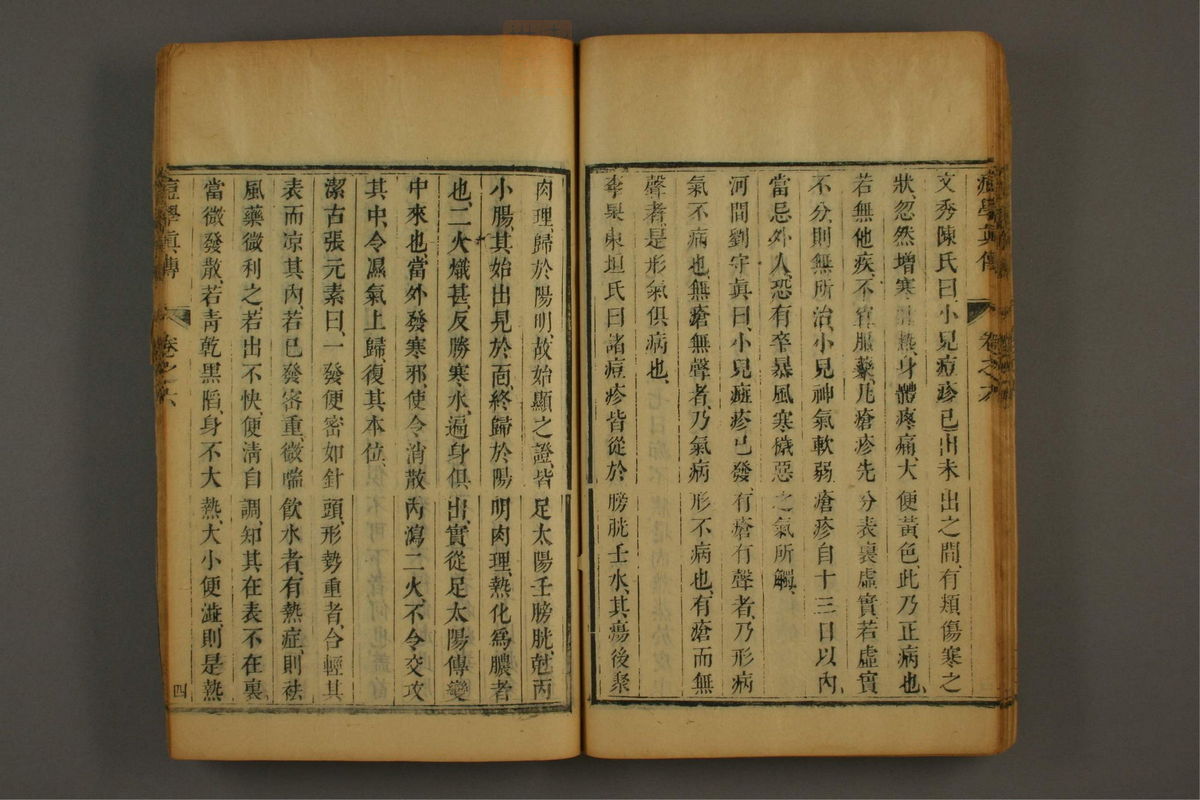 痘學真傳 卷之六
文秀陳氏曰小兒痘疹已出未出之間有類傷寒之
狀忽然增寒壯熱身體疼痛大便黃色此乃正病也
若無他疾不宜服藥凡瘡疹先分表裏虛實若虛實
不分則無所治小兒神氣軟弱瘡疹自十三日以內
當忌外人恐有卒暴風寒穢惡之氣所觸
河間劉守眞曰小兒瘡疹已發有瘡有聲者乃形病
氣不病也無瘡無聲者乃氣病形不病也有瘡而無
聲者是形氣俱病也
李杲東垣氏曰諸痘疹皆從於膀胱壬水其瘍後聚
肉理歸於陽明故始顯之證皆足太陽壬膀胱尅丙
小腸其始出見於面終歸於陽明肉理熱化爲膿者
也二火熾甚反勝寒水遍身俱出實從足太陽傳變
中來也當外發寒邪使令消散內瀉二火不令交攻
其中令濕氣上歸復其本位
潔古張元素曰一發便密如針頭形勢重者合輕其
表而凉其內若已發密重微喘飲水者有熱症則祛
風藥微利之若出不快便淸自調知其在表不在裏
當微發散若靑乾黑陷身不大熱大小便澁則是熱
痘學眞傳 卷之六 四